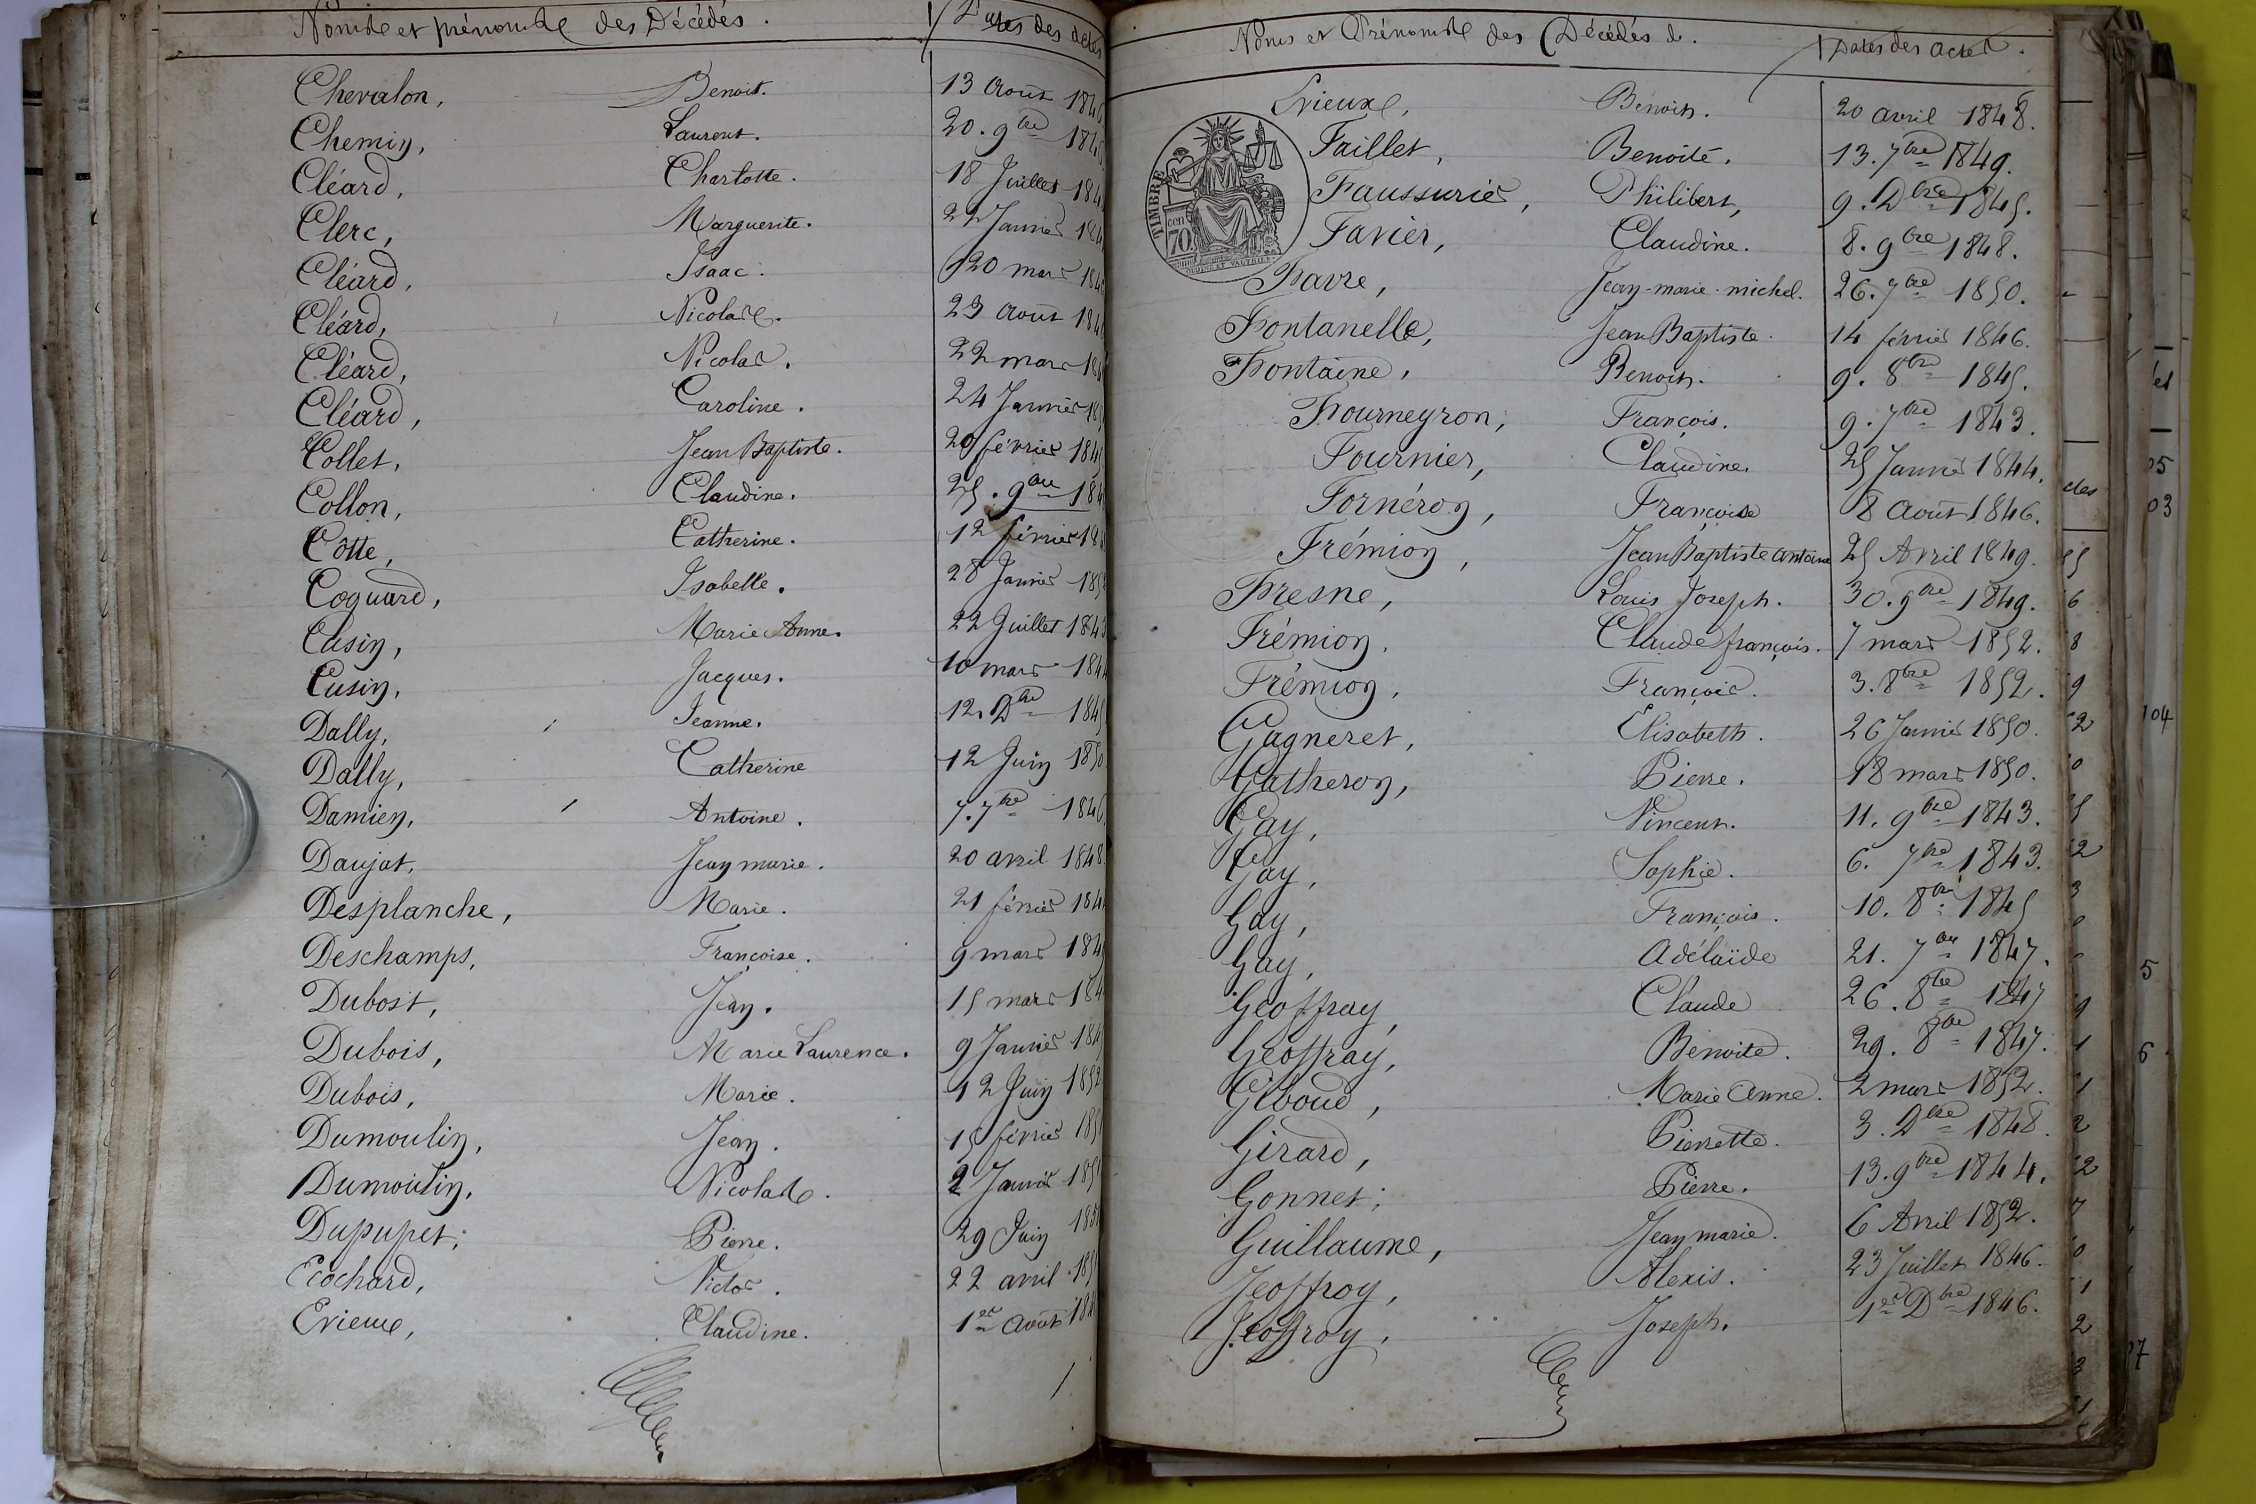 Noms et prénoms des Décédés. Dates des actes
Chevalon, Benoit. 13 Août 1846
Chemin, Laurent. 20. 9bre 184
Cléard, Charlotte. 18 Juillet 184
Clerc, Marguerite. 22 Janvier 184
Cléard, Isaac. 20 mars 184
Cléard, Nicolas. 23 août 184
Cléard, Nicolas. 22 mars 18
Cléard, Caroline. 24 Janvier 18
Collet, Jean Baptiste. 20 février 184
Collon, Claudine. 25. 9bre 184
Côtte, Catherine. 12 février 18
Coquard, Isabelle. 28 Janvier 185
Cusin, Marie Anne. 22 Juillet 1843
Cusin, Jacques. 10 mars 1844
Dally, Jeanne. 12. Dbre 1845
Dally, Catherine 12 Juin 1850
Damien, Antoine. 7. 7bre 1846
Daujat, Jean marie. 20 avril 1848
Desplanche, Marie. 21 février 184
Deschamps, Françoise. 9 mars 184
Dubost, Jean. 15 mars 184
Dubois, Marie Laurence. 9 Janvier 184
Dubois, Marie. 12 Juin 1852
Dumoulin, Jean. 15 février 185
Dumoulin, Nicolas. 2 Janvier 185
Dupupet; Pierre. 29 Juin 185
Ecochard, Victor. 22 avril 185
Erieux, Claudine. 1er août 184
Noms et Prénoms des Décédés. Dates des actes.
Erieux, Benoit. 20 avril 1848.
Faillet, Benoite. 13. 7bre 1849.
Faussurier, Philibert, 9. Dbre 1845.
Favier, Claudine. 8. 9bre 1848.
Favre, Jean-marie-michel. 26. 7bre 1850.
Fontanelle, Jean Baptiste. 14 février 1846.
Fontaine, Benoit. 9. 8bre 1845.
Fourneyron, François. 9. 7bre 1843.
Fournier, Claudine. 25 Janvier 1844.
Fornéron, Françoise 8 Août 1846.
Frémion, Jean Baptiste antoine 25 Avril 1849.
Fresne, Louis Joseph. 30. 9bre 1849.
Frémion, Claude françois. 7 mars 1852.
Frémion, François. 3. 8bre 1852.
Gagneret, Elisabeth. 26 Janvier 1850.
Gatheron, Pierre. 18 mars 1850.
Gay, Vincent. 11. 9bre 1843.
Gay, Sophie. 6. 7bre 1843.
Gay, François. 10. 8bre 1845
Gay, Adélaïde 21. 7bre 1847.
Geoffray, Claude 26. 8bre 1847
Geoffray, Benoite. 29. 8bre 1847.
Giboud, Marie Anne. 2 mars 1852.
Girard, Pierrette. 3. Dbre 1848.
Gonnet; Pierre. 13. 9bre 1844.
Guillaume, Jean marie. 6 Avril 1852.
Jeoffroy, Alexis. 23 Juillet 1846.
Jeoffroy. Joseph. 1er Dbre 1846.
TIMBRE
70